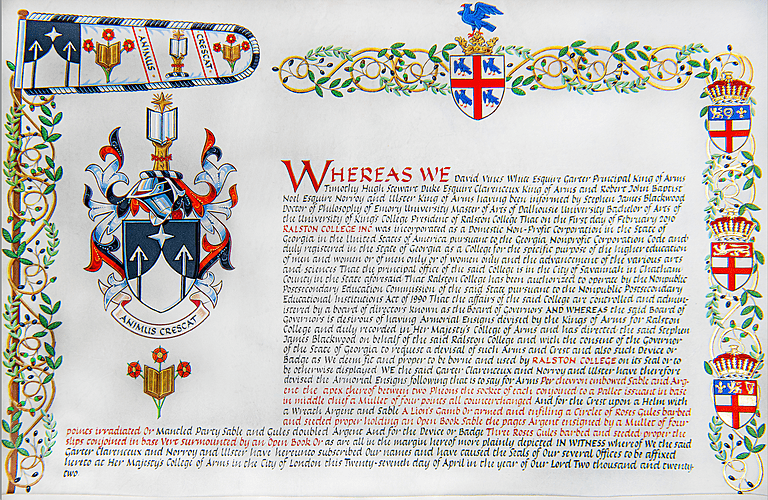 ANIMUS
CRESCAT
WHEREAS WE David Vines White Esquire Garter Principal King of Arms
Timothy Hugh Stewart Duke Esquire Clarenceux King of Arms and Robert John Baptist
Noel Esquire Norroy and Ulster King of Arms having been informed by Stephen James Blackwood
Doctor of Philosophy of Emory University Master of Arts of Dalhousie University Bachelor of Arts of
the University of King's College President of Ralston College That on the First day of February 2010
RALSTON COLLEGE INC was incorporated as a Domestic Non-Profit Corporation in the State of
Georgia in the United States of America pursuant to the Georgia Nonprofit Corporation Code and
duly registered in the State of Georgia as a College for the specific purpose of the higher education
of men and women or of men only or of women only and the advancement of the various arts
and sciences That the principal office of the said College is in the City of Savannah in Chatham
County in the State aforesaid That Ralston College has been authorized to operate by the Nonpublic
Postsecondary Education Commission of the said State pursuant to the Nonpublic Postsecondary
Educational Institutions Act of 1990 That the affairs of the said College are controlled and admin-
istered by a board of directors known as the Board of Governors AND WHEREAS the said Board of
Governors is desirous of having Armorial Ensigns devised by the Kings of Arms for Ralston
College and duly recorded in Her Majesty's College of Arms and has directed the said Stephen
James Blackwood on behalf of the said Ralston College and with the consent of the Governor
of the State of Georgia to request a devisal of such Arms and Crest and also such Device or
Badge as We deem fit and proper to be borne and used by RALSTON COLLEGE on its Seal or to
be otherwise displayed WE the said Garter Clarenceux and Norroy and Ulster have therefore
devised the Armorial Ensigns following that is to say for Arms Per chevron embowed Sable and Arg-
ent the apex thereof between two Pheons the socket of each conjoined to a Pallet issuant in base
in middle chief a Mullet of four points all counterchanged And for the Crest upon a Helm with
a Wreath Argent and Sable A Lion's Gamb Or armed and enfiling a Circlet of Roses Gules barbed
and seeded proper holding an Open Book Sable the pages Argent ensigned by a Mullet of four
points irradiated Or Mantled Party Sable and Gules doubled Argent And for the Device or Badge Three Roses Gules barbed and seeded proper the
slips conjoined in base Vert surmounted by an Open Book Or as are all in the margin hereof more plainly depicted IN WITNESS whereof We the said
Garter Clarenceux and Norroy and Ulster have hereunto subscribed Our names and have caused the Seals of Our several Offices to be affixed
hereto at Her Majesty's College of Arms in the City of London this Twenty-seventh day of April in the year of Our Lord Two thousand and twenty-
two
ANIMUS CRESCAT